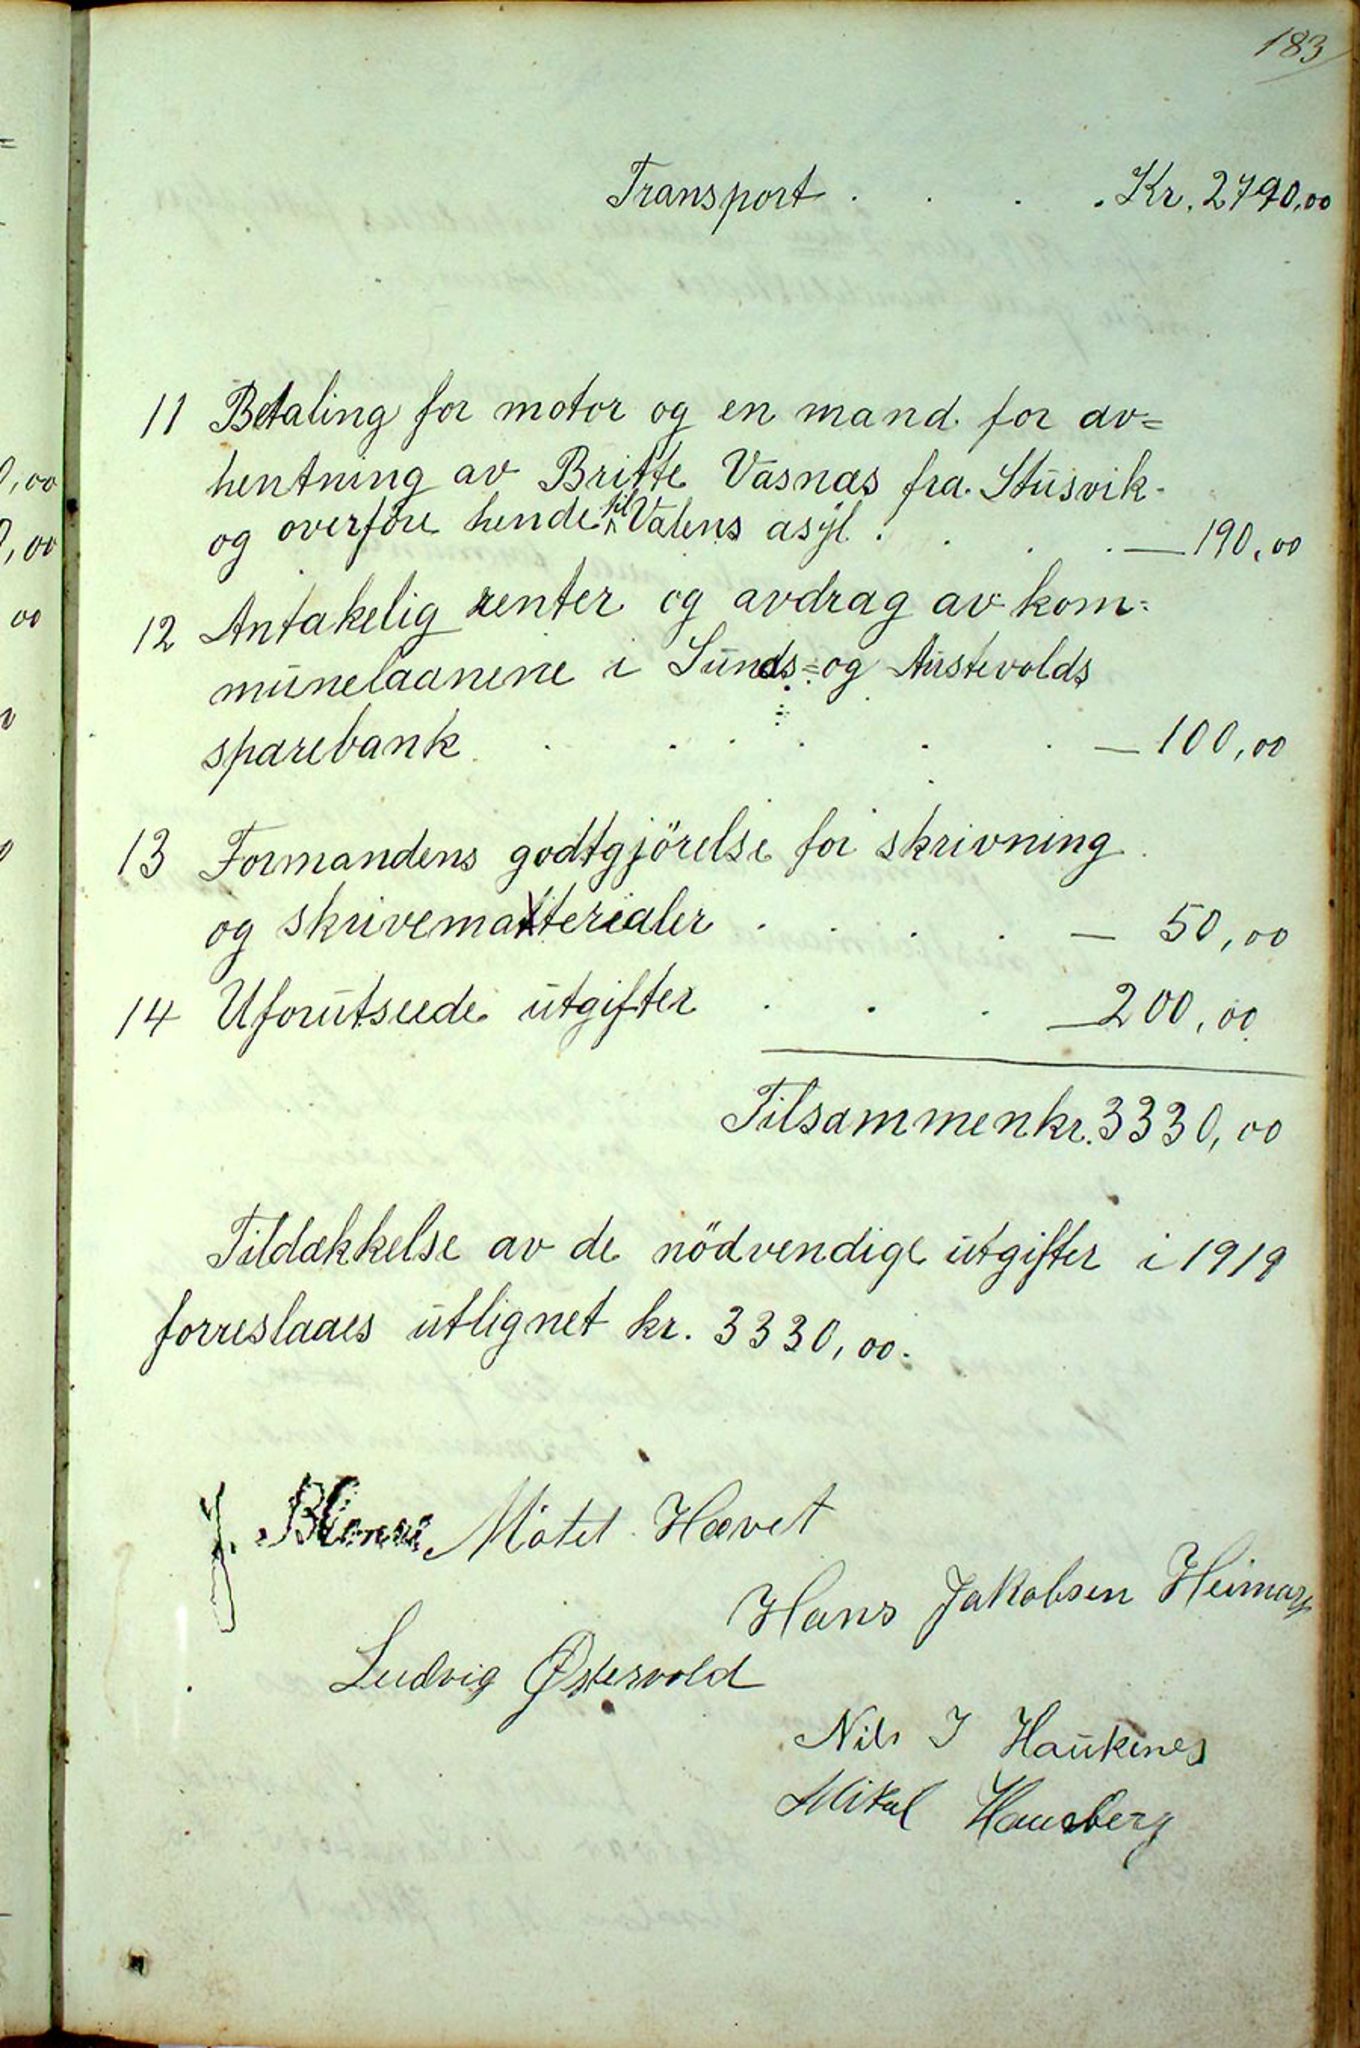 183
Transport . . . . Kr. 2790,00
11 Betaling for motor og en mand for av=
hentning av Britte Vasnæs fra Stusvik
og overføre hende til Valens asyl . . . . — 190,00
12 Antakelig renter og avdrag av kom=
munelaanene i Sunds= og Austevolds
sparebank . . . . . . — 100,00
13 Formandens godtgjörelse for skrivning
og skrivematerialer . . . . — 50,00
14 Uforutseede utgifter . . . — 200,00
Tilsammen kr. 3330,00
Tildækkelse av de nödvendige utgifter i 1919
forreslaaes utlignet kr. 3330,00.
J. Hævet
Hans Jakobsen
Ludvig Østervold
Nils J Haukenes
Mikal
0,00
0,00
00